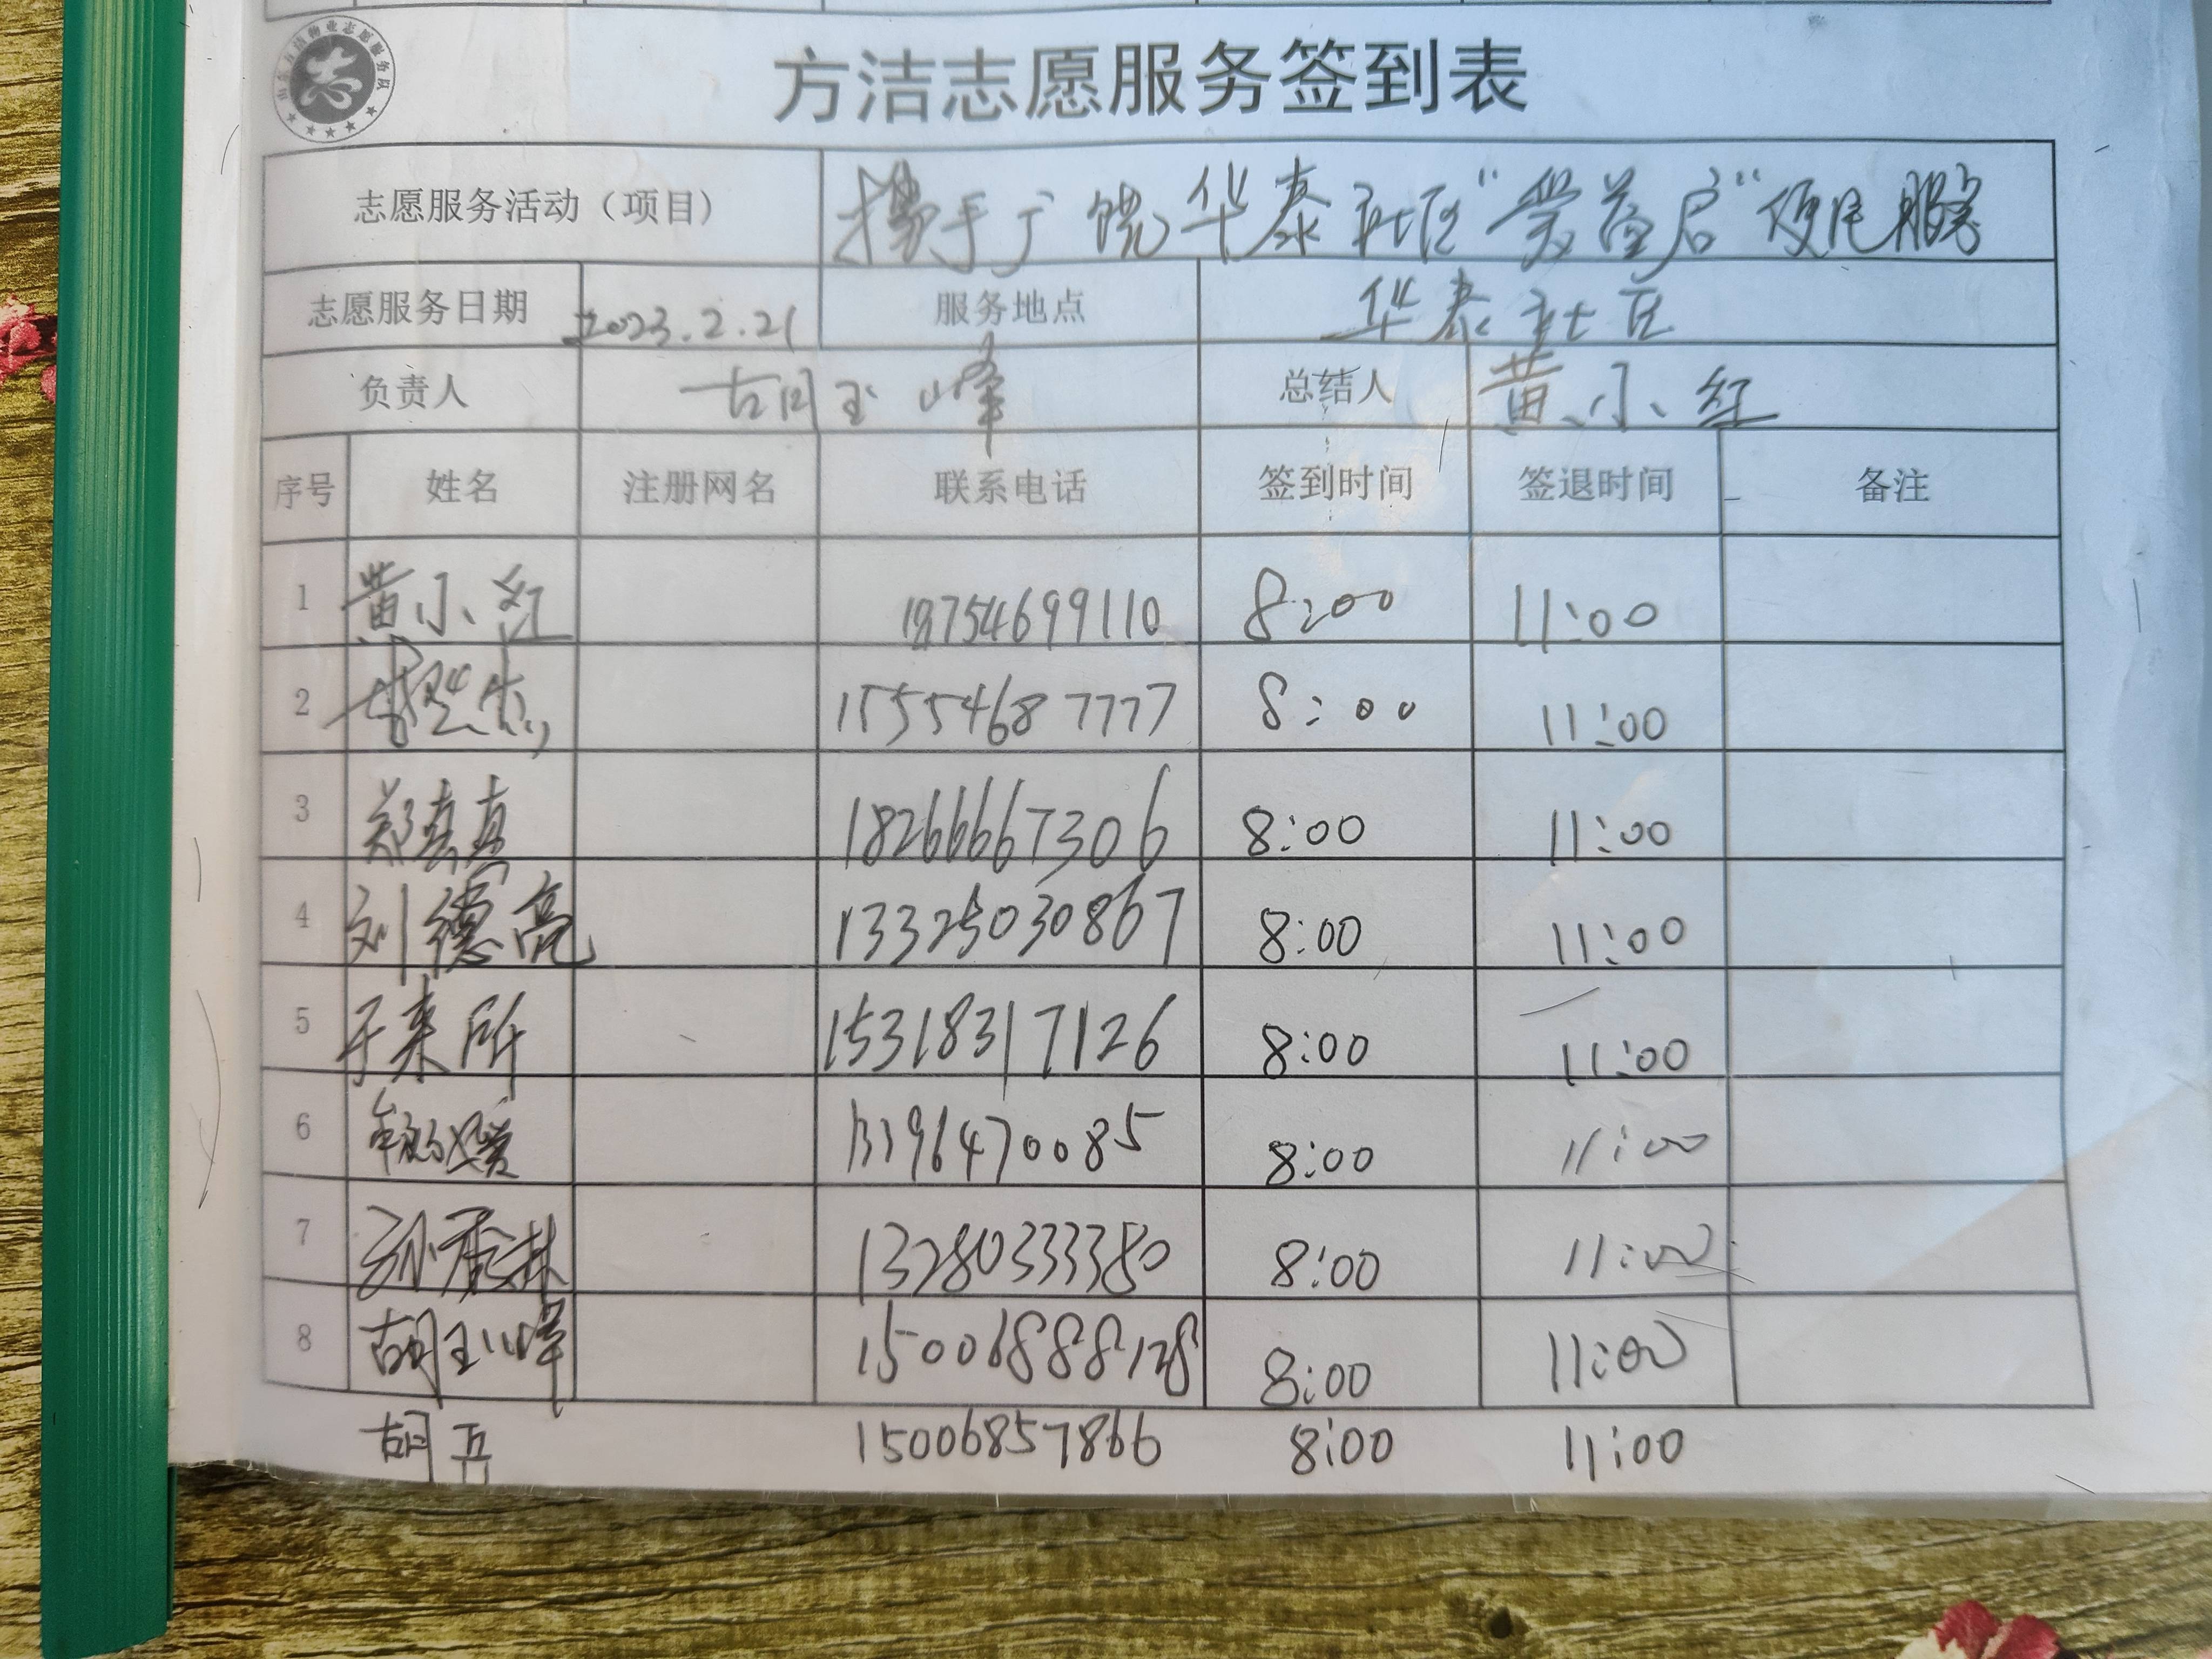 方洁志愿服务签到表
志愿服务活动（项目） 携手广饶华泰社区“爱益启”便民服务
志愿服务日期 2023.2.21 服务地点 华泰社区
负责人 胡玉峰 总结人 黄小红
序号 姓名 注册网名 联系电话 签到时间 签退时间 备注
1 黄小红 18754699110 8:00 11:00
2 15554687777 8:00 11:00
3 郑真真 18266667306 8:00 11:00
4 刘德亮 13325030867 8:00 11:00
5 于来所 15318317126 8:00 11:00
6 13396470085 8:00 11:00
7 孙秀林 13280333380 8:00 11:00
8 胡玉峰 15006888128 8:00 11:00
胡兵 15006857866 8:00 11:00